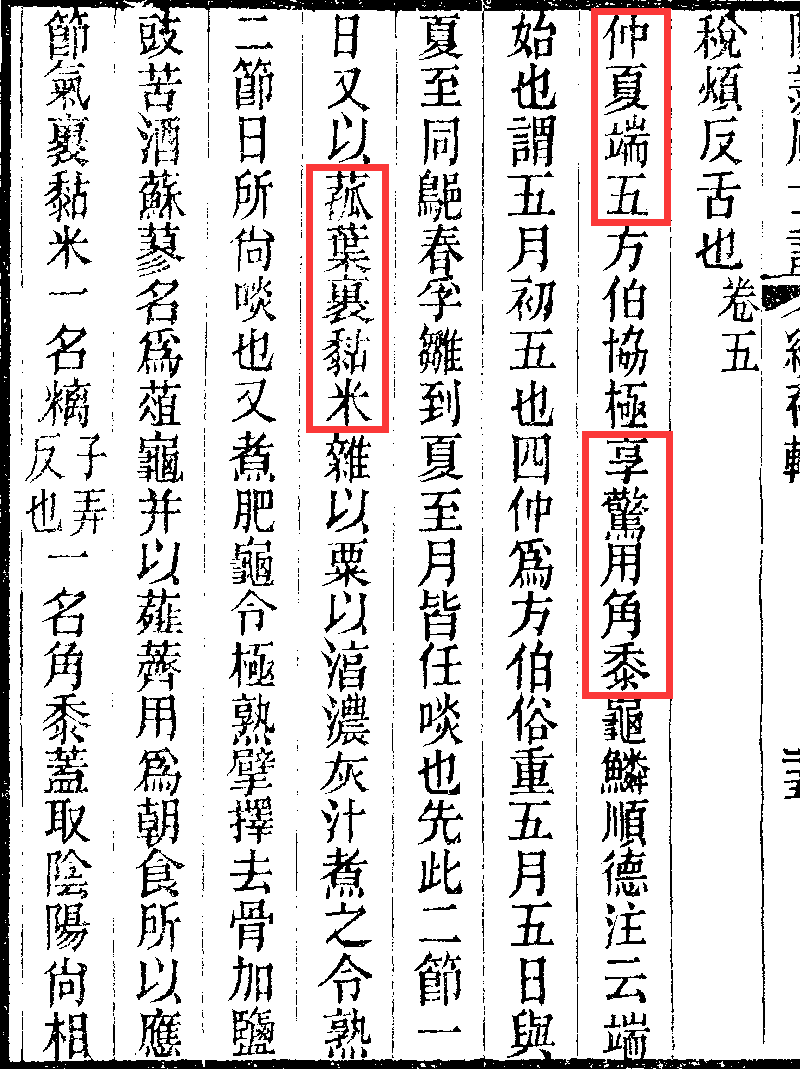 稅煩反舌也卷五
仲夏端五方伯協極享驚用角黍龜鱗順德注云端
始也謂五月初五也四仲爲方伯俗重五月五日與
夏至同春孚雛到夏至月皆任啖也先此二節一
日又以菰葉裹黏米雜以粟以淊濃灰汁煮之令熟
二節日所尙啖也又煮肥龜令極熟擘擇去骨加鹽
豉苦酒蘇蓼名爲葅龜并以薤薺用爲朝食所以應
節氣裹黏米一名糉子弄反也一名角黍蓋取陰陽尙相